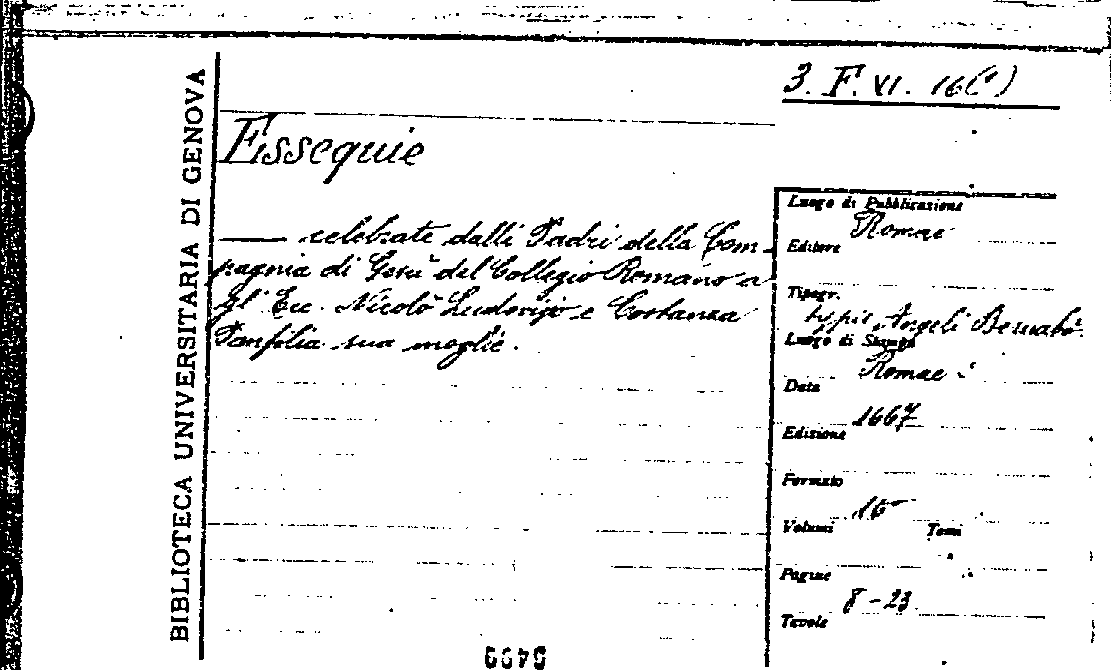 BIBLIOTECA UNIVERSITARIA DI GENOVA
3. F. VI. 16(
Essequie
—— celebrate dalli Padri della Com-
pagnia di Gesù del Collegio Romano a
gl' Ecc. Nicolò Ludovisio e Costanza
Panfilia sua moglie.
Luogo di Pubblicazione
Romae
Editore
Tipogr.
typis Angeli Bernabò
Luogo di Stampa
Romae
Data
1667
Edizione
Formato
16°
Volumi Tomi
Pagine
8-23
Tavole
5499